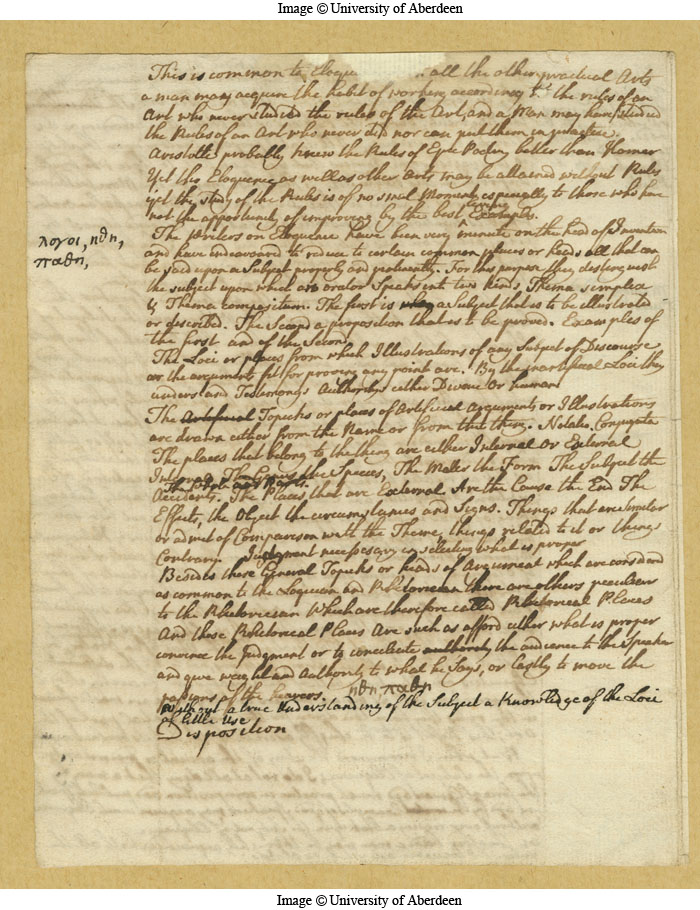 Image © University of Aberdeen
This is common to Eloquence all the other practical Arts
a man may acquire the habit of working according to the rules of an
Art who never studied the rules of the Art, and a Man may have studied
the Rules of an Art who never did nor can put them in practice.
Aristotle probably knew the Rules of Epic Poetry better than Homer
Yet tho Eloquence as well as other Arts may be attained without Rules
yet the study of the Rules is of no small Moment, especially to those who have
not the opportunity of improving by the best living Examples.
The Writers on Eloquence have been very minute on the head of Invention
λογοι, ηθη,
παθη,
and have endeavoured to reduce to certain common places or heads all that can
be said upon a Subject properly and pertinently. For this purpose they distinguish
the subject upon which an orator Speaks into two kinds, Thema simplex
& Thema compositum. The first is a Subject that is to be illustrated
or described. The Second a proposition that is to be proved. Examples of
the first and of the Second.
The Loci or places from which Illustrations of any Subject of Discourse
or the arguments fit for proving any point are. By the inartificial Loci they
understand Testimonys Authoritys either Divine or human
The Artificial Topicks or places of Artificial Arguments or Illustrations
are drawn either from the Name or from the thing. Notatio, Conjugata
The places that belong to the thing are either Internal or External
Internal The Genus the Species, The Matter the Form The Subject the
The whole and Parts.
Accidents. The Places that are External Are the Cause the End The
Effects, the Object the circumstances and Signs. Things that are Similar
or admit of Comparison with the Theme, things related to it or things
Contrary. Judgment necessary in selecting what is proper
Besides these General Topicks or heads of Argument which are considered
as common to the Logician and Rhetorician there are others peculiar
to the Rhetorician Which are therefore called Rhetorical Places
And those Rhetorical Places Are such as afford either what is proper
convince the judgment or to conciliate authority the audience to the Speaker
and give weight and Authority to what he Says, or lastly to move the
passions of the hearers. ηθη παθη
Without a true Understanding of the Subject a Knowledge of the Loci
of little Use
Disposition
Image © University of Aberdeen